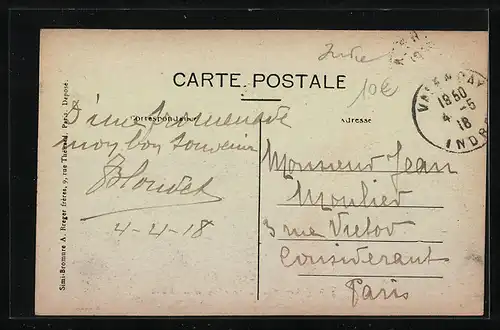 Indre
CARTE POSTALE
10€
Correspondance
Adresse
VALENÇAY
1850
4-5
18
INDRE
D'une promenade
mon bon souvenir
Blondet
4-4-18
Monsieur Jean
Moulied
3 rue Victor
Considerant
Paris
Simi-Bromure A. Breger frères, 9, rue Thénard, Paris. Déposé.